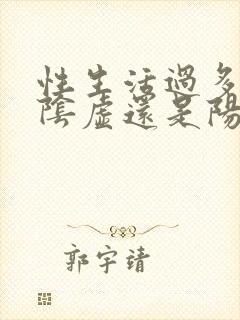 性生活過多
陰虛還是陽
郭宇靖